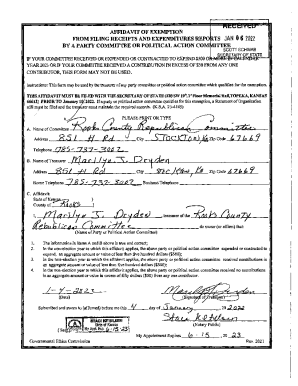 RECEIVED
AFFIDAVIT OF EXEMPTION
FROM FILING RECEIPTS AND EXPENDITURES REPORTS JAN 06 2022
BY A PARTY COMMITTEE OR POLITICAL ACTION COMMITTEE
SCOTT SCHWAB
SECRETARY OF STATE
IF YOUR COMMITTEE RECEIVED OR EXPENDED OR CONTRACTED TO EXPEND $500 OR MORE IN CALENDAR
YEAR 2022 OR IF YOUR COMMITTEE RECEIVED A CONTRIBUTION IN EXCESS OF $50 FROM ANY ONE
CONTRIBUTOR, THIS FORM MAY NOT BE USED.
Instructions: This form may be used by the treasurer of any party committee or political action committee which qualifies for the exemption.
THIS AFFIDAVIT MUST BE FILED WITH THE SECRETARY OF STATE
PLEASE PRINT OR TYPE
A. Name of Committee Rooks County Republican Committee
Address 851 H Rd City STOCKTON Zip Code 67669
Telephone 785-737-3002
B. Name of Treasurer Marilyn J. Dryden
Address 851 H Rd City Zip Code 67669
Home Telephone 785-737-3002 Business Telephone
C. Affidavit
State of Kansas
County of Rooks
I, Marilyn J. Dryden treasurer of the Rooks County
Republican Committee do swear (or affirm) that:
(Name of Party or Political Action Committee)
1. The information in Items A and B above is true and correct;
2. In the calendar year in which this affidavit applies, the above party or political action committee expended or contracted to
expend, an aggregate amount or value of less than five hundred dollars ($500);
3. In the calendar year in which this affidavit applies, the above party or political action committee received contributions in
an aggregate amount or value of less than five hundred dollars ($500);
4. In the calendar year in which this affidavit applies, the above party or political action committee received no contributions
in an aggregate amount or value in excess of fifty dollars ($50) from any one contributor.
1-4-2022
(Date) (Signature of Treasurer)
Subscribed and sworn to (affirmed) before me this 4 day of January, 2022
(Notary Public)
My Appointment Expires 6-15 23
Governmental Ethics Commission Rev. 2021